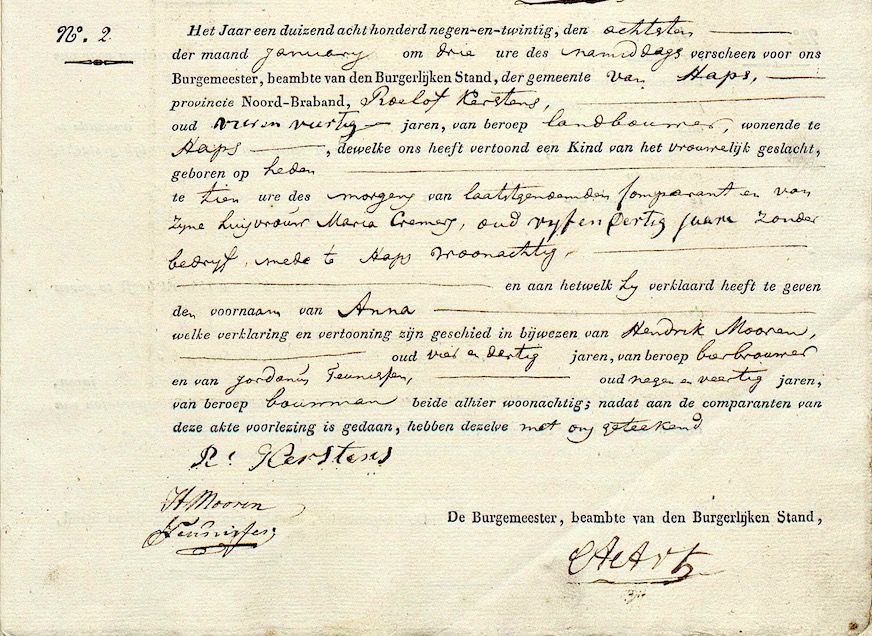 N.o 2
Het Jaar een duizend acht honderd negen-en-twintig, den achtsten
der maand january om drie ure des namiddags verscheen voor ons
Burgemeester, beambte van den Burgerlijken Stand, der gemeente van Haps,
provincie Noord-Braband, Roelof Kerstens,
oud vier en veertig jaren, van beroep landbouwer, wonende te
Haps , dewelke ons heeft vertoond een Kind van het vrouwelijk geslacht,
geboren op heden
te tien ure des morgens van laatstgenoemden Comparant en van
zyne huisvrouw Maria Cremers, oud vyf en dertig jaare zonder
bedryf, mede te Haps woonachtig
en aan hetwelk hy verklaard heeft te geven
den voornaam van Anna
welke verklaring en vertooning zijn geschied in bijwezen van Hendrik Mooren,
oud vier en dertig jaren, van beroep bierbrouwer
en van Jordanus Teunissen, oud negen en veertig jaren,
van beroep bouwman beide alhier woonachtig; nadat aan de comparanten van
deze akte voorlezing is gedaan, hebben dezelve met ons geteekend
R. Kerstens
H Mooren
Teunissen
De Burgemeester, beambte van den Burgerlijken Stand,